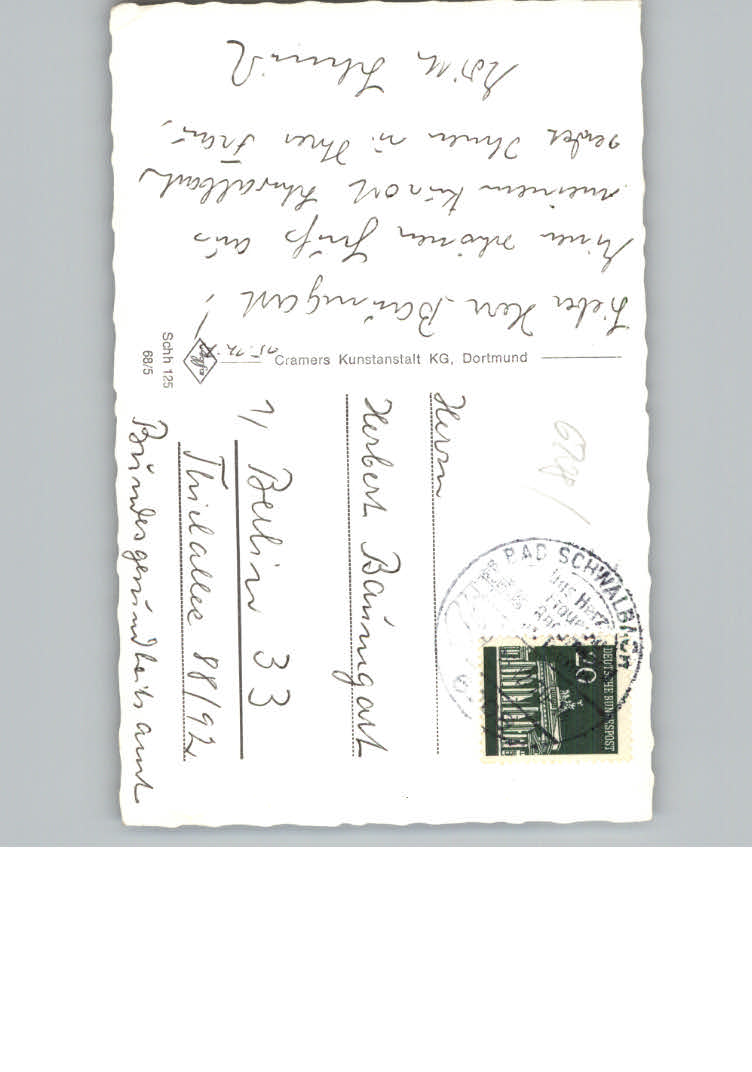 Lieber Herr Baumgart!
Einen schönen Gruß aus
meinem Kurort Schwalbach
sendet Ihnen u. Ihrer Frau,
Cramers Kunstanstalt KG, Dortmund
Agfa
Schh 125
68/5
Herrn
Herbert Baumgart
1/ Berlin 33
Thielallee 88/92
Bundesgesundheitsamt
BAD SCHWALBACH
Das Herz
20
DEUTSCHE BUNDESPOST